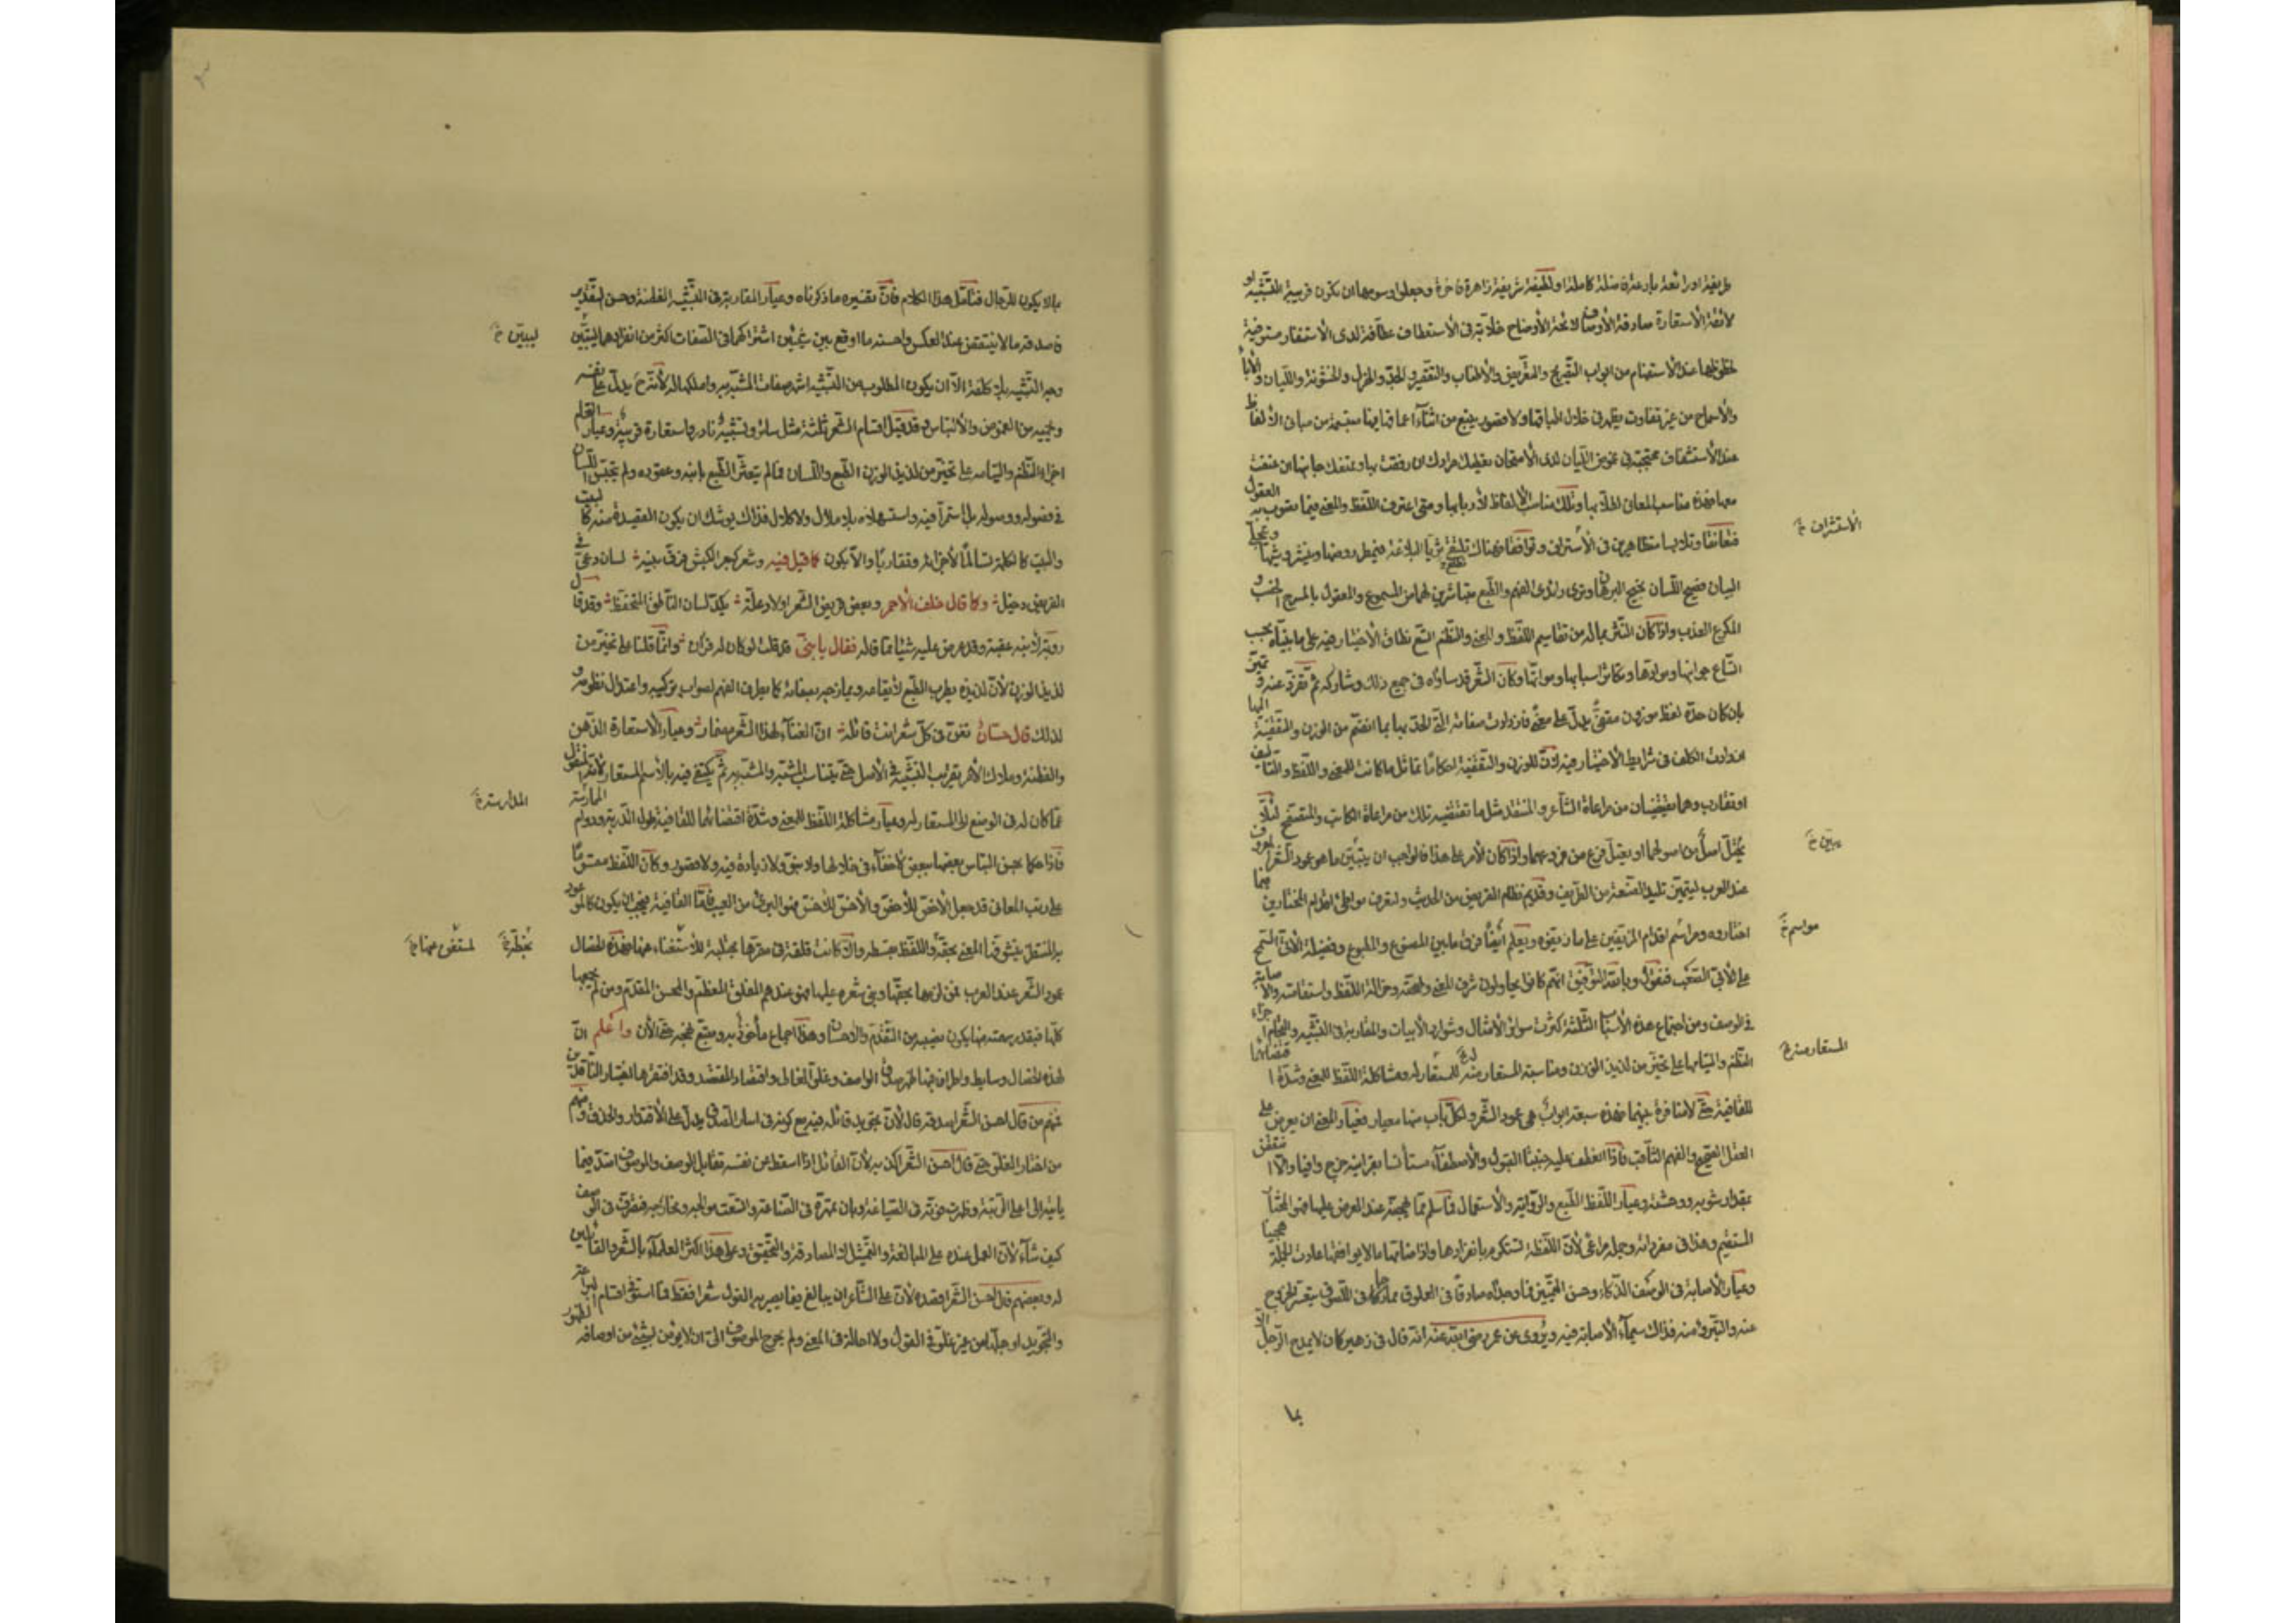 طريفة او رائعة بارعة فاضلة كاملة او لطيفة شريفة زاهرة فاخرة وجعلوا رسومها ان تكون قريبة التشبيه
لائقة الاستعارة صادقة الأوصاف لائحة الأوضاح خلّابة في الاستعطاف عطّافة لدى الاستنفار مستوفية
لحظوظها عند الاستهام من ابواب التصريح والتعريض والاطناب والتقصير والجدّ والهزل والخشونة واللّيان والأباء
والأسماح من غير تفاوت يظهر في خلال اطباقها ولا قصور ينبع من اثناء اعماقها مبتسمة من مباني الألفاظ
عند الاستشفاف محتجبة في غموض الصّيان لدى الامتحان تعطيك مرادك ان رفقت بها وتمنعك جانبها ان عنفت
معها فهذه مناسب المعاني لطلّابها وتلك مناصب الألفاظ لأربابها ومتى اعترف اللّفظ والمعنى فيما تصوب به العقول
فتعانقا وتلابسا متظاهرين في الأشتراك وتوافقا فهناك يلتقي ثريّا البلاغة فيمطر روضها وينشر وشيها ويتجلّى
البيان فصيح اللّسان نجيح البرهان وترى رائدى الفهم والطّبع متباشرين لهما من المسموع والمعقول بالمسرح الخصب و
المكرع العذب واذا كان النّثر بما له من تقاسيم اللّفظ و المعنى والنّظم اتّسع نطاق الاختيار فيه على ما بيّنّاه بحسب
اتّساع جوانبها وموادّها وتكاثر اسبابها ومواتّها وكان الشّعر قد ساواه في جميع ذلك وشاركه ثمّ تفرّد عنه وتميّز
بان كان حدّه لفظ موزون مقفّى يدلّ على معنى فازدادت صفاته الّتي احاط الحدّ بها بما انضمّ من الوزن والتقفية اليها
ازدادت الكلف في شرايط الاختيار فيه لأنّ للوزن والتقفية احكاما تماثل ما كانت للمعنى واللّفظ والتأليف
او تقارب وهما يقتضيان من مراعاة الشّاعر والمنتقد مثل ما تقتضيه تلك من مراعاة الكاتب والمتصفّح لئلّا
يختلّ اصل من اصولهما او يعتلّ فرع من فروعهما واذا كان الأمر على هذا فالواجب ان يتبيّن ما هو عمود الشّعر المعروف
عند العرب ليتميّز تليد الصّنعة من الطّريف وقديم نظام القريض من الحديث ولتعرف مواطئ اقدام المختارين فيما
اختاروه ومراسم اقدام المزيّفين على ما زيّفوه ويعلم أيضًا فرق ما بين المصنوع والمطبوع وفضيلة الأتىّ السّمح
على الأبىّ الصّعب فنقول وبالله التوفيق انّهم كانوا يحاولون شرف المعنى وصحّته وجزالة اللّفظ واستقامته والأصابة
في الوصف ومن اجتماع هذه الأسباب الثّلثة كثرت سوائر الأمثال وشوارد الأبيات والمقاربة في التشبيه والتحام اجزاء
النّظم والتيامها على تخيّر من لذيذ الوزن ومناسبة المستعار منه للمستعار له ومشاكلة اللّفظ للمعنى وشدّة اقتضائهما
للقافية حتّى لا منافرة بينهما فهذه سبعة ابواب هى عمود الشّعر ولكلّ باب منها معيار فعيار المعنى ان يعرض على
العقل الصّحيح والفهم الثّاقب فاذا انعطف عليه جنبتا القبول والأصطفاء مستأنسا بقرائنه خرج وافيا والّا انتقض
بمقدار شوبه ووحشته وعيار اللّفظ الطّبع والرّواية والاستعمال فما سلم ممّا يهجّنه عند العرض عليها فهو المختار
المستقيم وهذا في مفرداته وجمله مراعى لأنّ اللّفظة تستكرم بانفرادها واذا ضامّها ما لا يوافقها عادت الجملة هجينا
وعيار الأصابة في الوصف الذّكاء وحسن التّمييز فما وجداه صادقا في العلوق ممازجا في اللّصوق يتعسّر الخروج
عنه والتبرّؤ منه فذاك سيماء الأصابة فيه ويُروى عن عمر رضى الله عنه انّه قال في زهير كان لا يمدح الرّجل الّا
بما
الاستشراف خ
يبيّن خ
مواسم خ
المستعار منه خ
بما لا يكون للرّجال فتأمّل هذا الكلام فانّ تفسيره ما ذكرناه وعيار المقاربة في التّشبيه الفطنة وحسن التقدير
فاصدقه ما لا ينتقض عند العكس واحسنه ما اوقع بين شيئين اشتراكهما في الصّفات اكثر من انفرادهما ليتبيّن
وجه التّشبيه بلا كلفة الّا ان يكون المطلوب من التّشبيه اشهر صفات المشبّه به واملكها له لأنّه ح يدلّ على نفسه
ويحميه من الغموض والألتباس وقد قيل اقسام الشّعر ثلثة مثل سائر وتشبيه نادر واستعارة قريبة وعيار التحام
اجزاء النّظم والتيامه على تخيّر من لذيذ الوزن الطّبع واللّسان فما لم يتعثّر الطّبع بابنيته وعقوده ولم يتحبّس اللّسان
في فصوله ووصوله بل استمرّا فيه واستسهلاه بلا ملال ولا كلال فذاك يوشك ان يكون القصيدة منه كالبيت
والبيت كالكلمة تسالما لأجزائه وتقاربا والّا يكون كما قيل فيه وشعر كبعر الكبش فرّق بينه لسان دعىّ في
القريض دخيل وكما قال خلف الأحمر وبعض قريض الشّعر اولاد علّة يكدّ لسان النّاطق المتحفّظ وقد قال
رؤبة لابنه عقبة وقد عرض عليه شيئا ممّا قاله فقال يا بنىّ قد قلت لو كان له قران وانّما قلنا على تخيّر من
لذيذ الوزن لأنّ لذيذه يطرب الطّبع لأيقاعه ويمازجه بصفائه كما يطرب الفهم لصواب تركيبه واعتدال نظومه و
لذلك قال حسّان تغنّ في كلّ شعر انت قائله انّ الغناء لهذا الشّعر مضمار وعيار الاستعارة الذّهن
والفطنة وملاك الأمر تقريب التّشبيه في الأصل حتّى يتناسب المشبّه والمشبّه به ثمّ يكتفى فيه بالأسم المستعار لأنّه المنقول
عمّا كان له في الوضع الى المستعار له وعيار مشاكلة اللّفظ للمعنى وشدّة اقتضائهما للقافية طول الدّربة ودوام الممارسة
فاذا حكما بحسن التباس بعضها ببعض لا خفاء في خلالها ولا نبوّ ولا زيادة فيه ولا قصور وكان اللّفظ مقسوما
على رتب المعاني قد جعل الأخصّ للأخصّ والأخسّ للأخسّ فهو البرىء من العيب وامّا القافية فيجب ان يكون كالموعود
به المنتظر يتشوّفها المعنى بحقّه واللّفظ بقسطه والّا كانت قلقة في مقرّها مجتلبة للاستغناء عنها فهذه الخصال
عمود الشّعر عند العرب فمن لزمها بحقّها وبنى شعره عليها فهو عندهم المفلق المعظّم والمحسن المقدّم ومن لم يجمعها
كلّها فبقدر سهمته منها يكون نصيبه من التّقدّم والأحسان وهذا اجماع مأخوذ به ومتّبع نهجه حتّى الآن واعلم انّ
لهذه الخصال وسايط واطراف فيها ظهر صدق الواصف وغلوّ الغالى واقتصاد المقتصد وقد اقتفرها اختيار النّاقدين
فمنهم من قال احسن الشّعر اصدقه قال لأنّ تجويد قائله فيه مع كونه في اسار الصّدق يدلّ على الأقتدار والحذق ومنهم
من اختار الغلوّ حتّى قال احسن الشّعر اكذبه لأنّ القائل اذا اسقط عن نفسه تقابل الوصف والموصوف امتدّ فيما
يأتيه الى اعلى الرّتبة وظهرت قوّته في الصّياغة وبان تمهّره في الصّناعة واتّسعت مخارجه وموالجه فتصرّف في الوصف
كيف شاء لأنّ العمل عنده على المبالغة والتّمثيل لا المصادقة والتّحقيق وعلى هذا اكثر العلماء بالشّعر والقائلين
له وبعضهم قال احسن الشّعر اقصده لأنّ على الشّاعر ان يبالغ فيما يصير به القول شعرا فقط فما استوفى اقسام البراعة
والتّجويد او جلّها من غير غلوّ في القول ولا احالة في المعنى ولم يخرج الموصوف الى ان لا يؤمن لشىء من اوصافه لظهور
ليبيّن خ
المدارسة خ